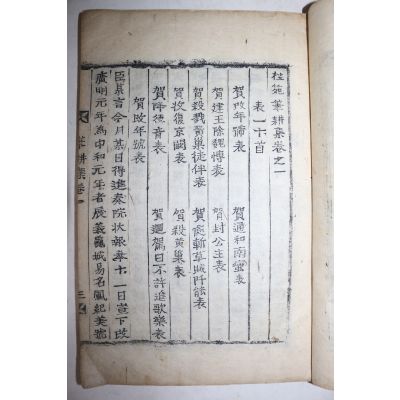 桂苑筆耕集卷之一
表一十首
賀改年號表 賀通和南蠻表
賀建王除魏博表 賀封公主表
賀殺戮黃巢徒伴表 賀處斬草賊阡能表
賀收復京闕表 賀殺黃巢表
賀降德音表 賀迴駕日不許進歌樂表
賀改年號表
臣某言今月某日得進奏院狀報奉十一日宣下改
廣明元年爲中和元年者辰義龜城易名鳳紀美號